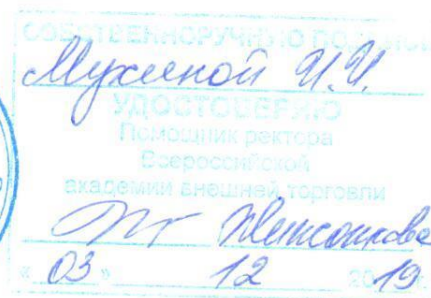 СОБСТВЕННОРУЧНУЮ ПОДПИСЬ
Мухиной И.И.
УДОСТОВЕРЯЮ
Помощник ректора
Всероссийской
академии внешней торговли
« 03 » 12 2019